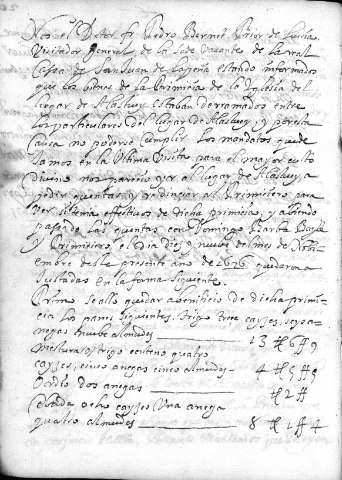 Nos el Dotor fr Pedro Bernet Prior de Luçia
Visitador General de la Sede Vacante de la Real
Cassa de San Juan de la Peña estando informados
que los bienes de la Primicia de la Iglesia del
lugar de Alastuey estaban derramados entre
los particulares del lugar de Alastuey, y por esta
causa no poderse cumplir los mandatos que de
Jamos en la Ultima Visita para el mayor culto
divino nos pareció yr al lugar de Alastuey a
pedir quentas y residenciar al Primiciero para
ver si tenia effectivos de dicha primicia, y abiendo
pasado las quentas con Domingo Barba Bayle
y Primiciero, el dia diez y nuebe del mes de Nobi
embre de la presente año de 1676 quedaron a
Justadas en la forma siguiente.
Primo se allo quedar a beneficio de dicha primi
cia los panes siguientes, trigo trece cayzes, seys a
negas nuebe almudes 13 6 9
mestura y trigo centeno quatro
cayzes, cinco anegas cinco almudes 4 5 9
Ordio dos anegas 2
Cebada ocho cayzes Una anega
quatro almudes 8 1 4